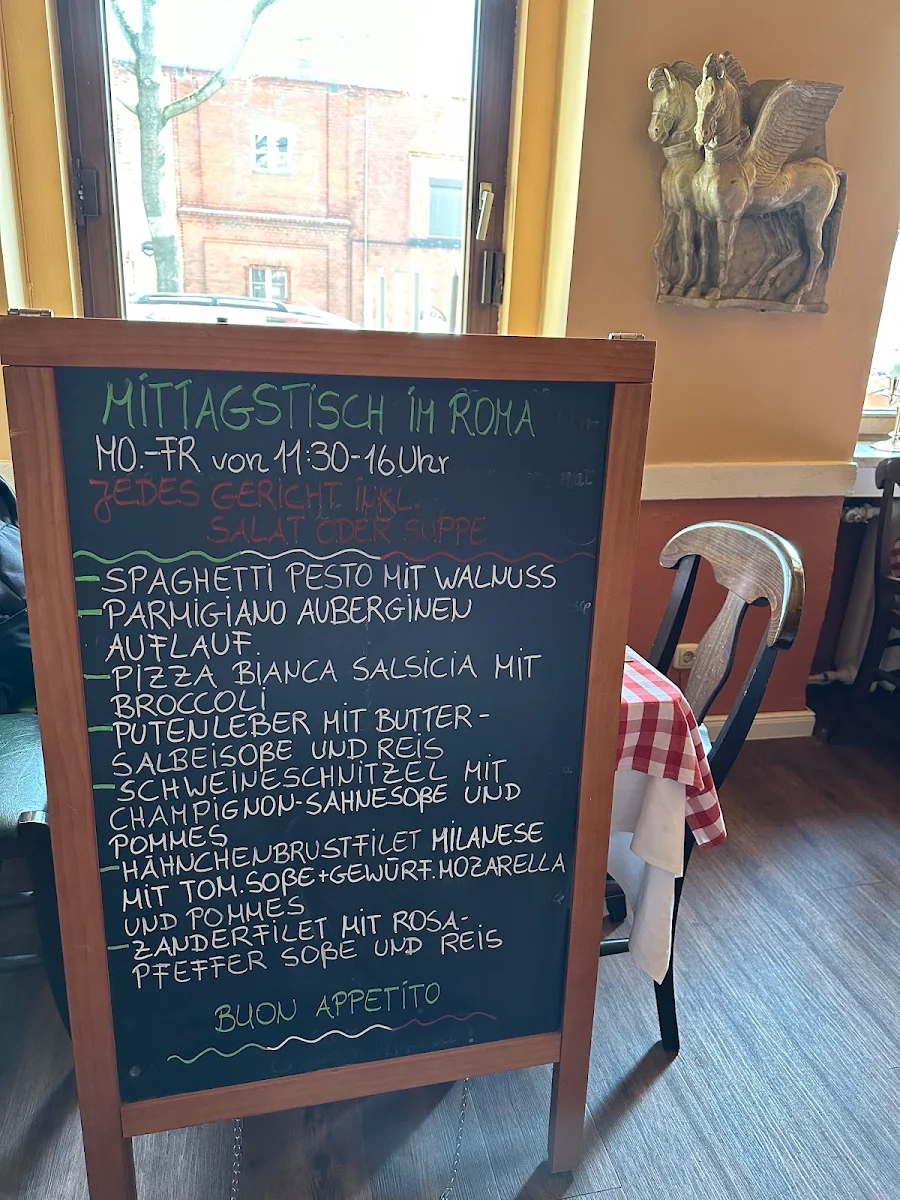 MITTAGSTISCH IM ROMA
MO.-FR von 11:30-16Uhr
JEDES GERICHT INKL.
SALAT ODER SUPPE
- SPAGHETTI PESTO MIT WALNUSS
- PARMIGIANO AUBERGINEN
AUFLAUF
- PIZZA BIANCA SALSICIA MIT
BROCCOLI
- PUTENLEBER MIT BUTTER-
SALBEISOßE UND REIS
- SCHWEINESCHNITZEL MIT
CHAMPIGNON-SAHNESOßE UND
POMMES
- HÄHNCHENBRUSTFILET MILANESE
MIT TOM.SOßE+GEWÜRF.MOZARELLA
UND POMMES
- ZANDERFILET MIT ROSA-
PFEFFER SOßE UND REIS
BUON APPETITO